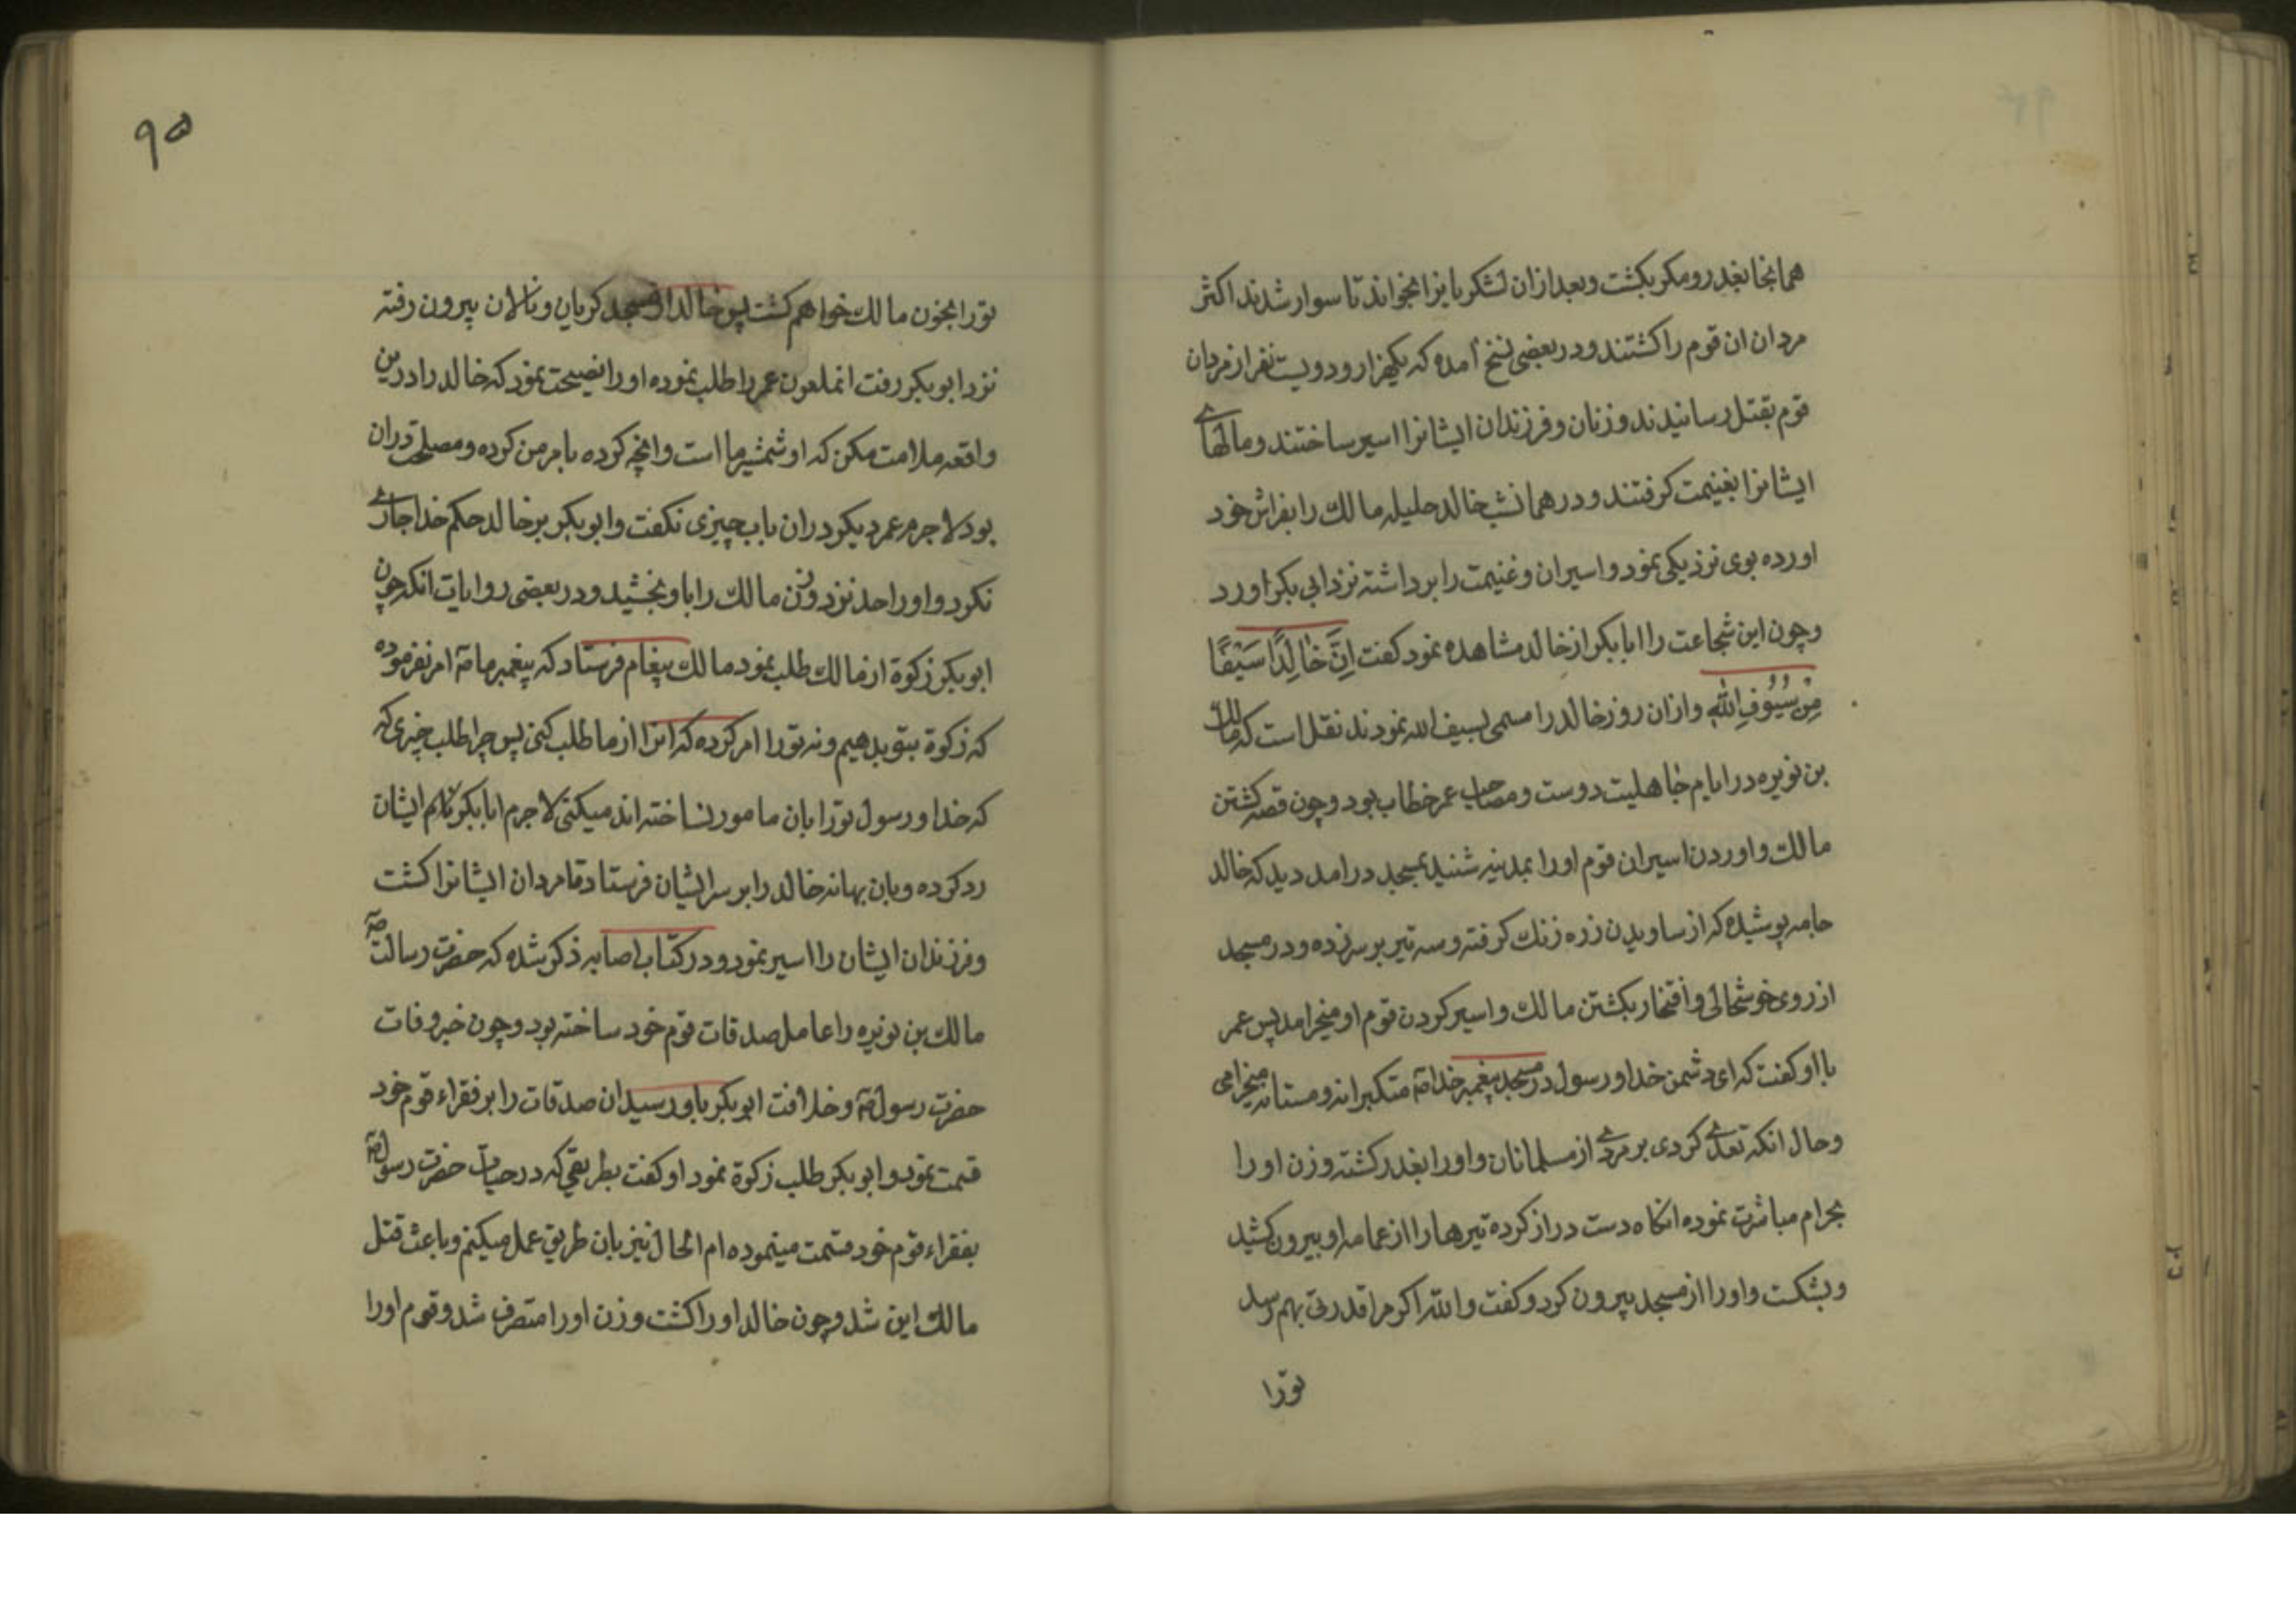 همانجا بغدر و مکر بکشت و بعد ازان لشکریانرا بخواند تا سوار شدند اکثر
مردان ان قوم را کشتند و در بعضی نسخ آمده که یکهزار و دویست نفر از مردان
قوم بقتل رسانیدند و زنان و فرزندان ایشانرا اسیر ساختند و مالهاے
ایشانرا بغنیمت کرفتند و در همانشب خالد حلیله مالك را بفراش خود
اورده بوی نزدیکی نمود و اسیران و غنیمت را برداشته نزد ابی بکر اورد
و چون این شجاعت را ابابکر از خالد مشاهده نمود کفت اِنَّ خٰالِدًا سَیْفًا
مِنْ سُیُوُفِ اللهِ و ازان روز خالد را مسمی بسیف الله نمودند نقل است که مالك
بن نویره در ایام جاهلیت دوست و مصاحب عمر خطاب بود و چون قصه کشتن
مالك و اوردن اسیران قوم او را بمدینه شنید بمسجد درامد دید که خالد
جامه پوشیده که از ساویدن زره زنك کرفته و سه تیر بر سر زده و در مسجد
از روی خوشحالی و افتخار بکشتن مالك و اسیر کردن قوم او میخرامد پس عمر
با او کفت که ای دشمن خدا و رسول در مسجد پیغمبر خدا صٓ متکبرانه و مستانه میخرامی
و حال انکه تعدے کردی بر مردے از مسلمانان و او را بغدر کشته و زن او را
بحرام مباشرت نموده انکاه دست دراز کرده تیرها را از عمامه او بیرون کشید
و بشکست و او را از مسجد بیرون کرد و کفت و الله اکر مرا قدرتی بهم رسد
تورا
۹۵
تورا بخون مالك خواهم کشت پس خالد از مسجد کریان و نالان بیرون رفته
نزد ابو بکر رفت انملعون عمر را طلب نموده او را نصیحت نمود که خالد را درین
واقعه ملامت مکن که او شمشیر ما است و انچه کرده بامر من کرده و مصلحت دران
بود لاجرم عمر دیکر دران باب چیزی نکفت و ابو بکر بر خالد حکم خدا جارے
نکرد و او را حد نزد و زن مالك را باو بخشید و در بعضی روایات انکه چون
ابو بکر زکوة از مالك طلب نمود مالك پیغام فرستاد که پیغمبر ما صٓ امر نفرموده
که زکوة بتو بدهیم و نه تورا امر کرده که انرا از ما طلب کنی پس چرا طلب چیزی که
که خدا و رسول تورا بان مامور نساخته اند میکنی لاجرم ابابکر کلام ایشان
رد کرده و بان بهانه خالد را بر سر ایشان فرستاد تا مردان ایشانرا کشت
و فرزندان ایشان را اسیر نمود و در کتاب اصابه ذکر شده که حضرت رسالت صٓ
مالك بن نویره را عامل صدقات قوم خود ساخته بود و چون خبر وفات
حضرت رسول صٓ و خلافت ابو بکر باو رسید ان صدقات را بر فقراء قوم خود
قسمت نمود و ابو بکر طلب زکوة نمود او کفت بطریقی که در حیات حضرت رسول صٓ
بفقراء قوم خود قسمت مینموده ام الحال نیز بان طریق عمل میکنم و باعث قتل
مالك این شد و چون خالد او را کشت و زن او را متصرف شد و قوم او را